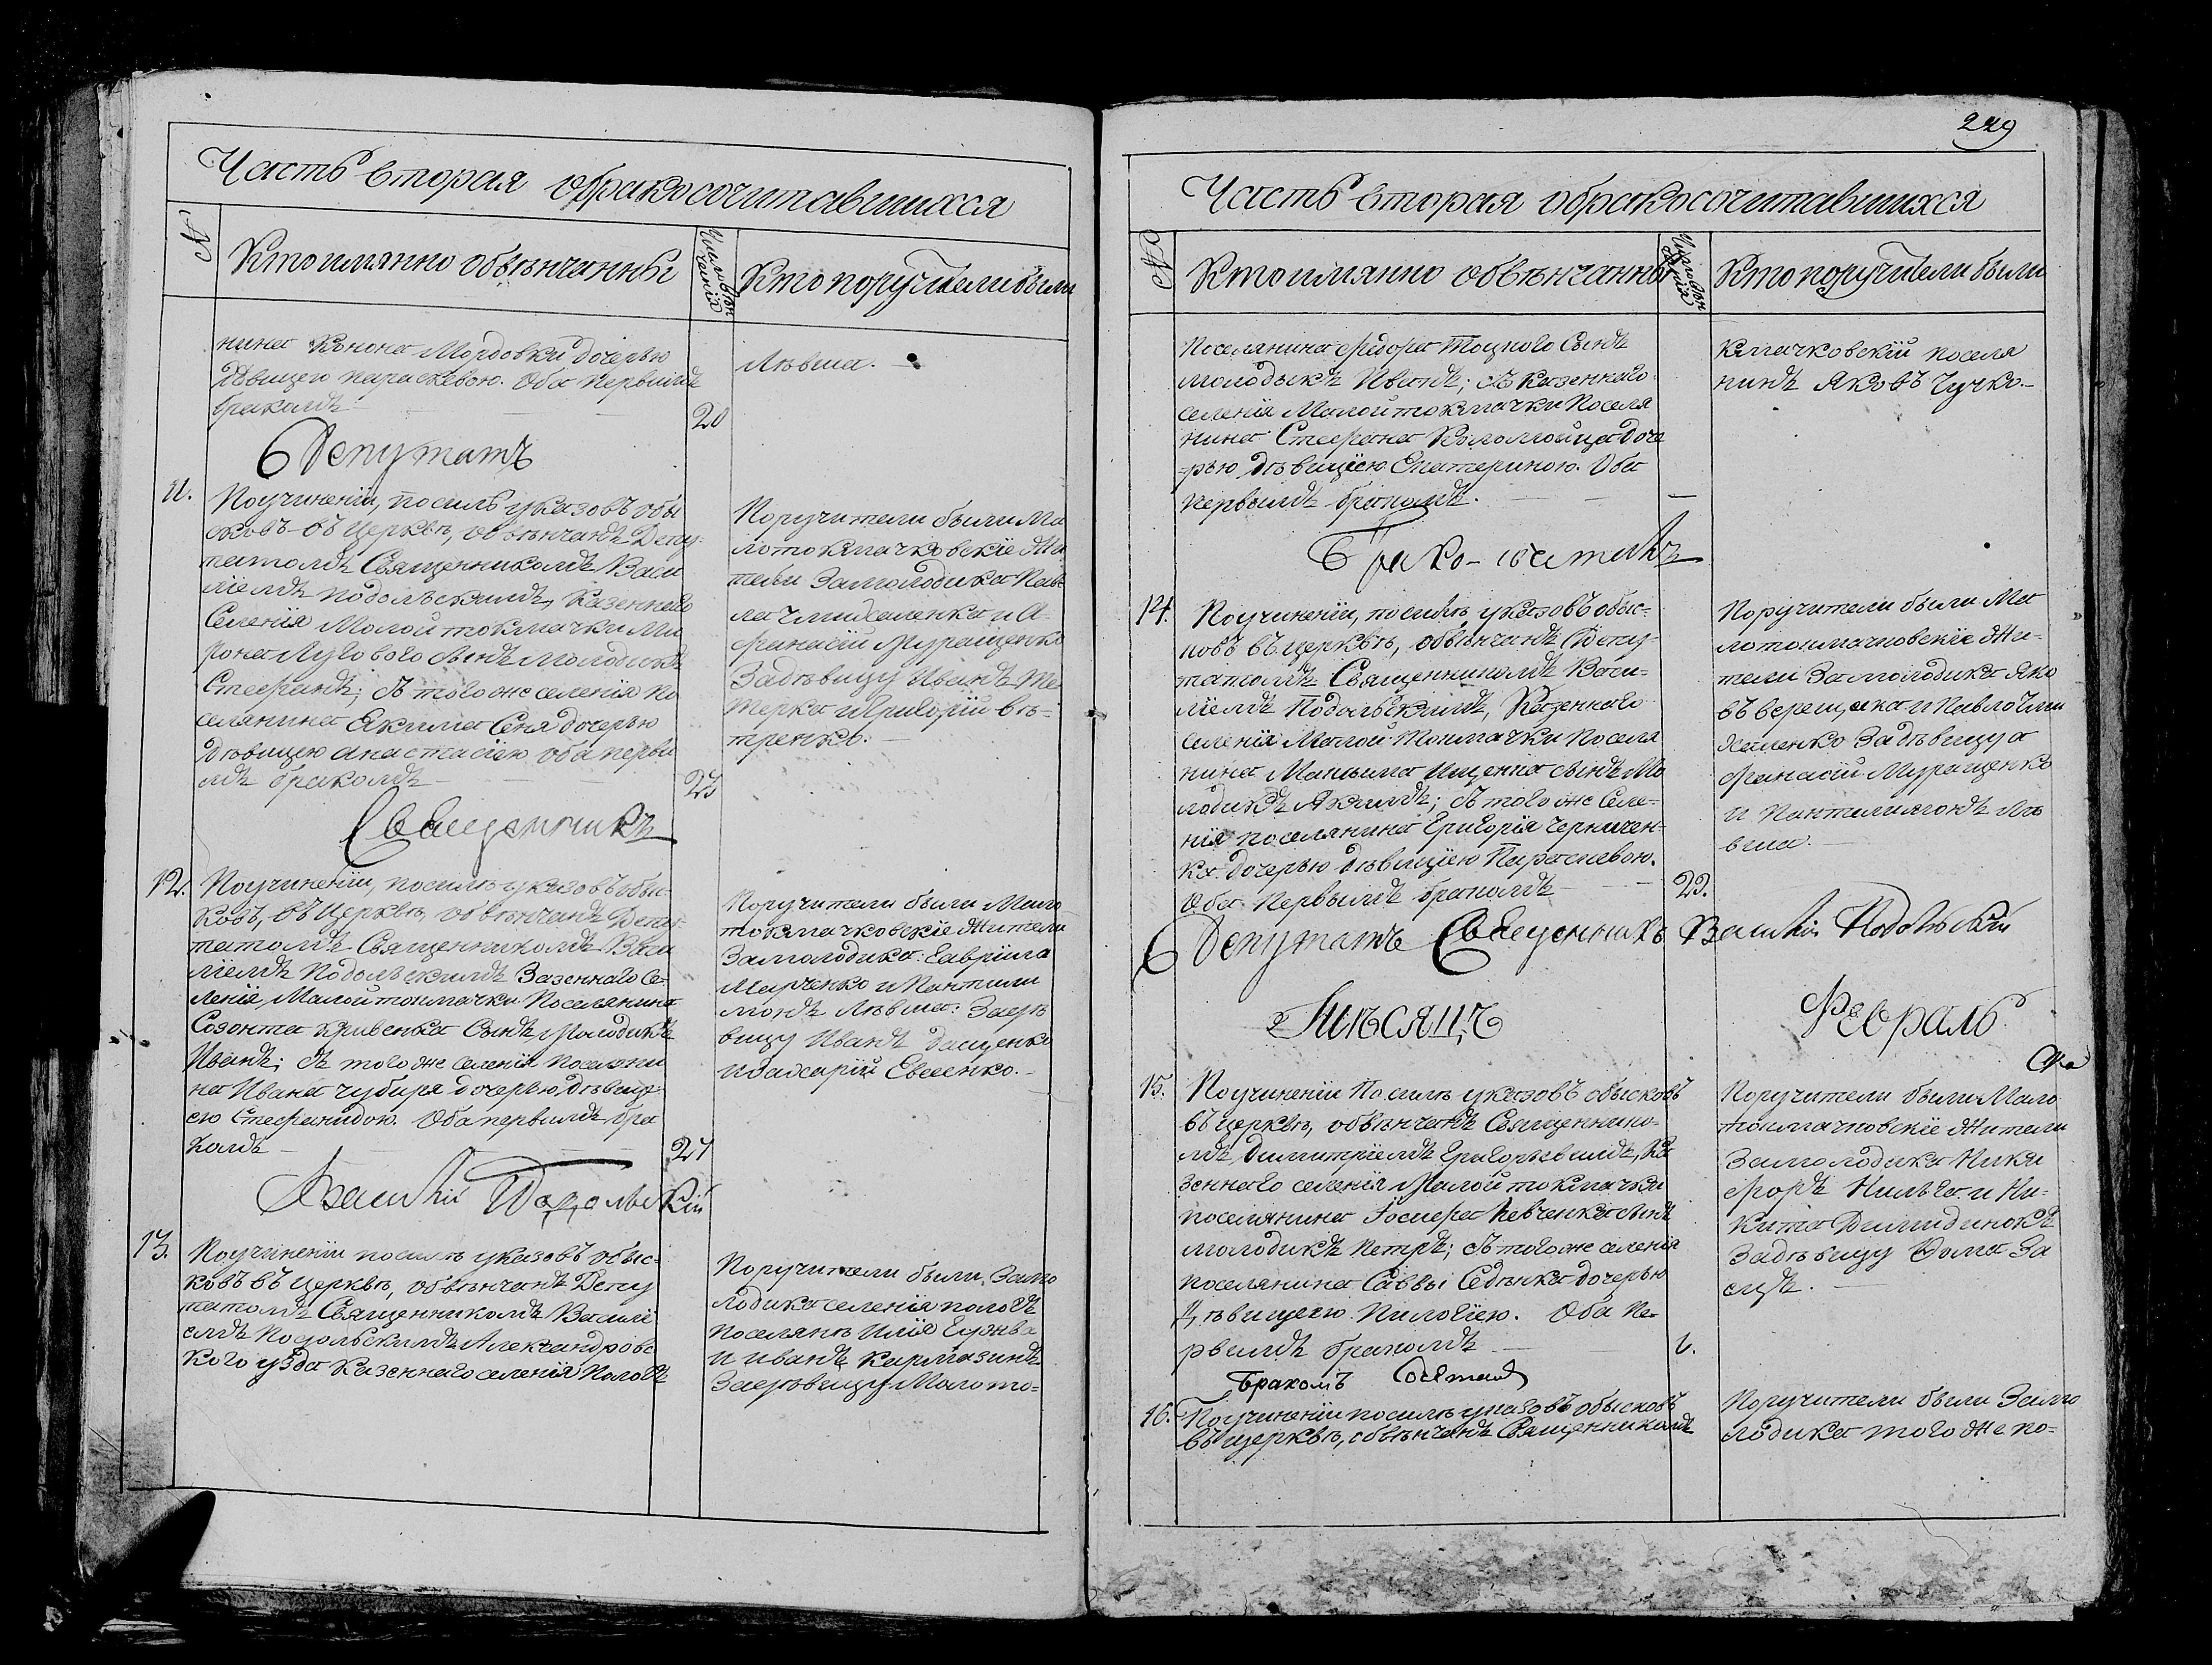 Часть вторая обракосочитавшихся
№
Кто имянно обвѣнчанны
Число вѣнчанія
Кто поручители были
нина Конона Мордовки дочерью
дѣвицею параскевою. Оба первымъ
бракомъ
20
Лѣвша.
Депутатъ
11.
Поучиненіи, посилѣ указовъ обы
сковъ въ Церквѣ, обвѣнчанъ Депу-
татомъ Священникомъ Васи
ліемъ подольскимъ, Казеннаго
Селенія Малой токмачки Ми
рона Лугового сынъ молодикъ
Стефанъ; Съ того же селенія по
селянина Якима Сеня дочерью
дѣвицею анастасіею оба первы
мъ бракомъ
23
Поручители были Ма
лотокмачковскіе Жи
тели Замолодика Пав
ла Чмихаленка и А-
финасій Муращенко
Задѣвицу Иванъ Те
терка и Григорій вѣ-
тренко.
Священникъ
12.
Поучиненіи, посилѣ указовъ обыс
ковъ, въ Церквѣ, обвѣнчанъ Депу-
татомъ Священникомъ Васи
ліемъ Подольскимъ Зазеннаго Се-
ленія, Малой токмачки Поселянина
Созонта Кривенка Сынъ Молодикъ
Иванъ; Съ того же селенія поселяни
на Ивана чубиря дочерью, дѣвиц-
ею Стефанидою. Оба первымъ бра
комъ
24
Поручители были Мало
токмачковскіе Жители
Замолодика: Гавріила
Марченко и Пантили
монъ Лѣвша: Задѣ
вицу Иванъ Дащенко
и Захарій Евсеенко.
Василій Подольскій
13.
Поучиненіи посилѣ указовъ обыс-
ковъ въ Церквѣ, обвѣнчанъ Депу
татомъ Священникомъ Василі
емъ Подольскимъ Александровс
кого уѣзда Казеннаго селенія Пологъ
Поручители были, Замо
лодика селенія пологъ
поселянѣ Илія
и иванъ Кармазинъ
Задѣвицу Малото-
229
Часть вторая обракосочитавшихся
№
Кто имянно обвѣнчанны
Число вѣнчанія
Кто поручители были
Поселянина Федора Тоцкого Сынъ
молодыкъ Иванъ; Съ Казеннаго
селенія Малой токмачки Поселя
нина Стефана Коломойца доче
-рью дѣвицею Екатериною. Оба
первымъ бракомъ.
кмачковскій поселя
нинъ Яковъ Чучко.
Брако-сочеталъ
14.
Поучиненіи, посилѣ указовъ обыс-
ковъ въ церквѣ, обвѣнчанъ Депу-
татомъ Священникомъ Васи-
ліемъ Подольскимъ, Казеннаго
селенія Малой Токмачки Поселя
нина Максима Ищенка сынъ Мо
лодикъ Якимъ; Съ того же Селе-
нія поселянина Григорія Черничен-
ка дочерью дѣвицею Параскевою.
Оба Первымъ бракомъ
23.
Поручители были Ма
лотокмачковскіе Жи-
тели Замолодика Яко
въ верещака и Павло Чми
халенко Задѣвицу а
финасій Муращенко
и Пантилимонъ Лѣ
вша.
Депутатъ Священникъ Василій Подольскій
Мѣсяцъ
Февраль.
15.
Поучиненіи Посилѣ указовъ обысковъ
въ церквѣ, обвѣнчанъ Священнико-
мъ Димитріемъ Григорьевимъ, Ка
зеннаго селенія Малой токмачки
поселянина Госифа Певченка сынъ
молодикъ Петръ; Съ того же селенія
поселянина Саввы Седѣнка дочерью
Дѣвицею Пилогіею. Оба пе-
рвымъ бракомъ
Поручители были Мало
токмачковскіе Жители
Замолодика Ники
форъ и Ни-
кита
Задѣвицу Фома За
ецъ.
Бракомъ
16.
Поучиненіи посилѣ указовъ обысковъ
въ церквѣ, обвѣнчанъ Священникомъ
Поручители были Замо
лодика того же по-